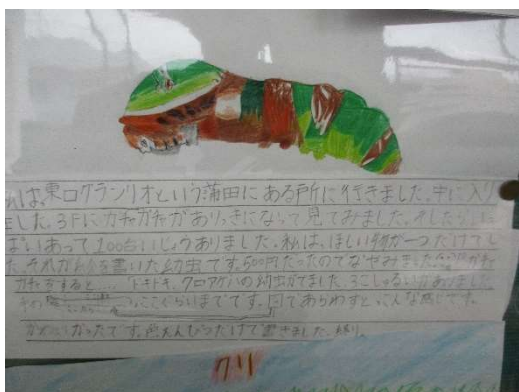 は、東口グランリオという蒲田にある所に行きました。中に入り
した。3Fにガチャガチャがありっきになって見てみました。そしたらいっ
ぱいあって100台いじょうありました。私は、ほしい物が一つだけでし
た。それが を書いた幼虫です。500円だったのでなやみました ガチャ
ガチャをすると…。「ドキドキ、クロアゲハの幼虫がでました。3こしゅるいがありました。
ここぐらいまでです。 であらわすとこんな感じです。
かわいかったです。色えんぴつだけで書きました。終り。
クリ